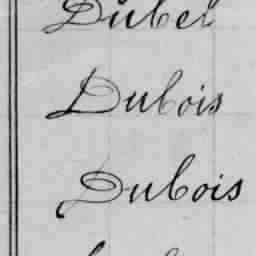 Dubel
Dubois
Dubois